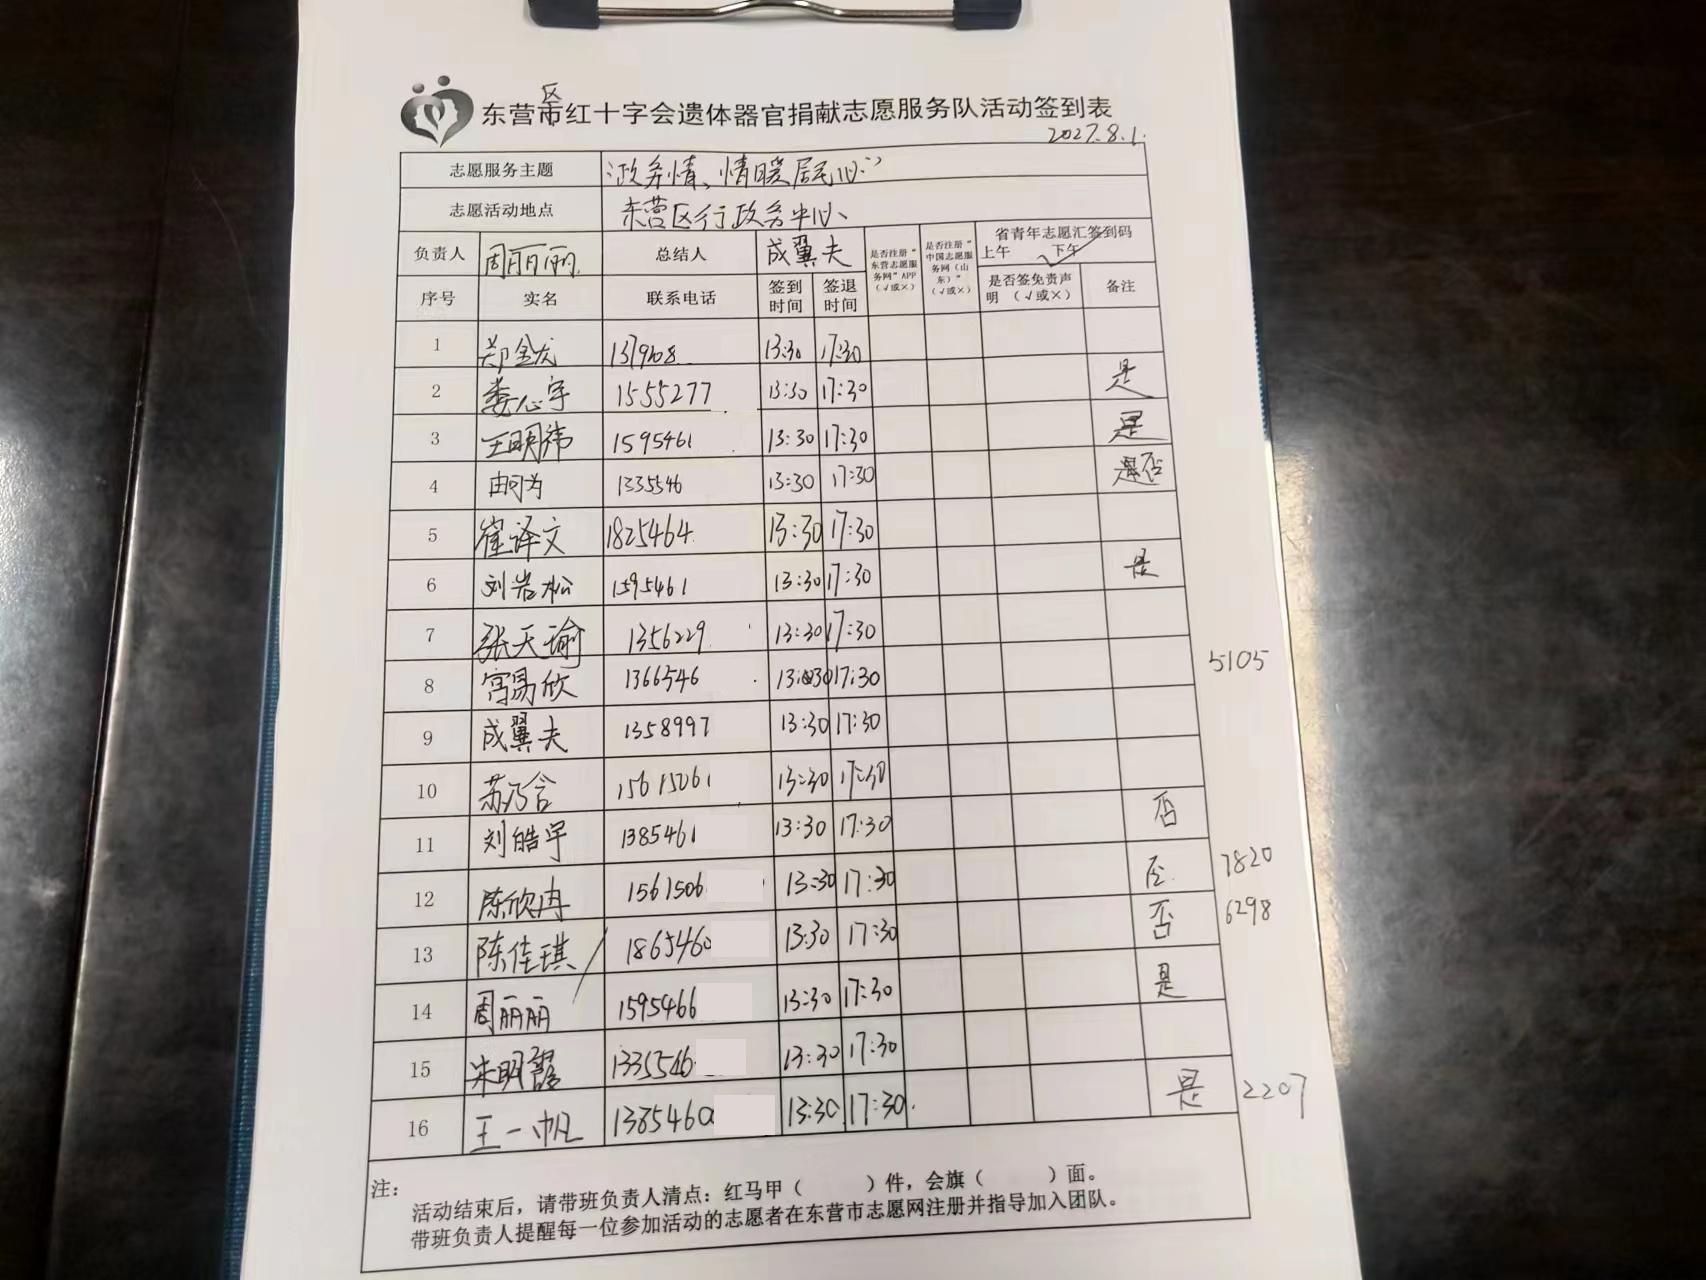 东营市区红十字会遗体器官捐献志愿服务队活动签到表
2027.8.1.
志愿服务主题 政务情、情暖居民心
志愿活动地点 东营区行政务中心
负责人 周丽丽 总结人 成翼夫 是否注册“东营志愿服务网”APP（√或×） 是否注册“中国志愿服务网（山东）”（√或×） 省青年志愿汇签到码 上午 下午 √
序号 实名 联系电话 签到时间 签退时间 是否签免责声明（√或×） 备注
1 郑金龙 137908 13:30 17:30
2 娄心宇 1555277 13:30 17:30 是
3 王明祎 1595461 13:30 17:30 是
4 由可为 1335546 13:30 17:30 否
5 崔译文 1825464 13:30 17:30
6 刘岩松 1595461 13:30 17:30 是
7 张天瑜 1356229 13:30 17:30
8 宫易欣 1366546 13:30 17:30 5105
9 成翼夫 1358997 13:30 17:30
10 苏乃合 15615061 13:30 17:30
11 刘皓宇 1385461 13:30 17:30 否
12 陈欣冉 1561506 13:30 17:30 否 7820
13 陈佳琪 1865460 13:30 17:30 否 6298
14 周丽丽 1595466 13:30 17:30 是
15 宋明霞 1335546 13:30 17:30
16 王一帆 1385460 13:30 17:30 是 2207
注：
活动结束后，请带班负责人清点：红马甲（ ）件，会旗（ ）面。
带班负责人提醒每一位参加活动的志愿者在东营市志愿网注册并指导加入团队。